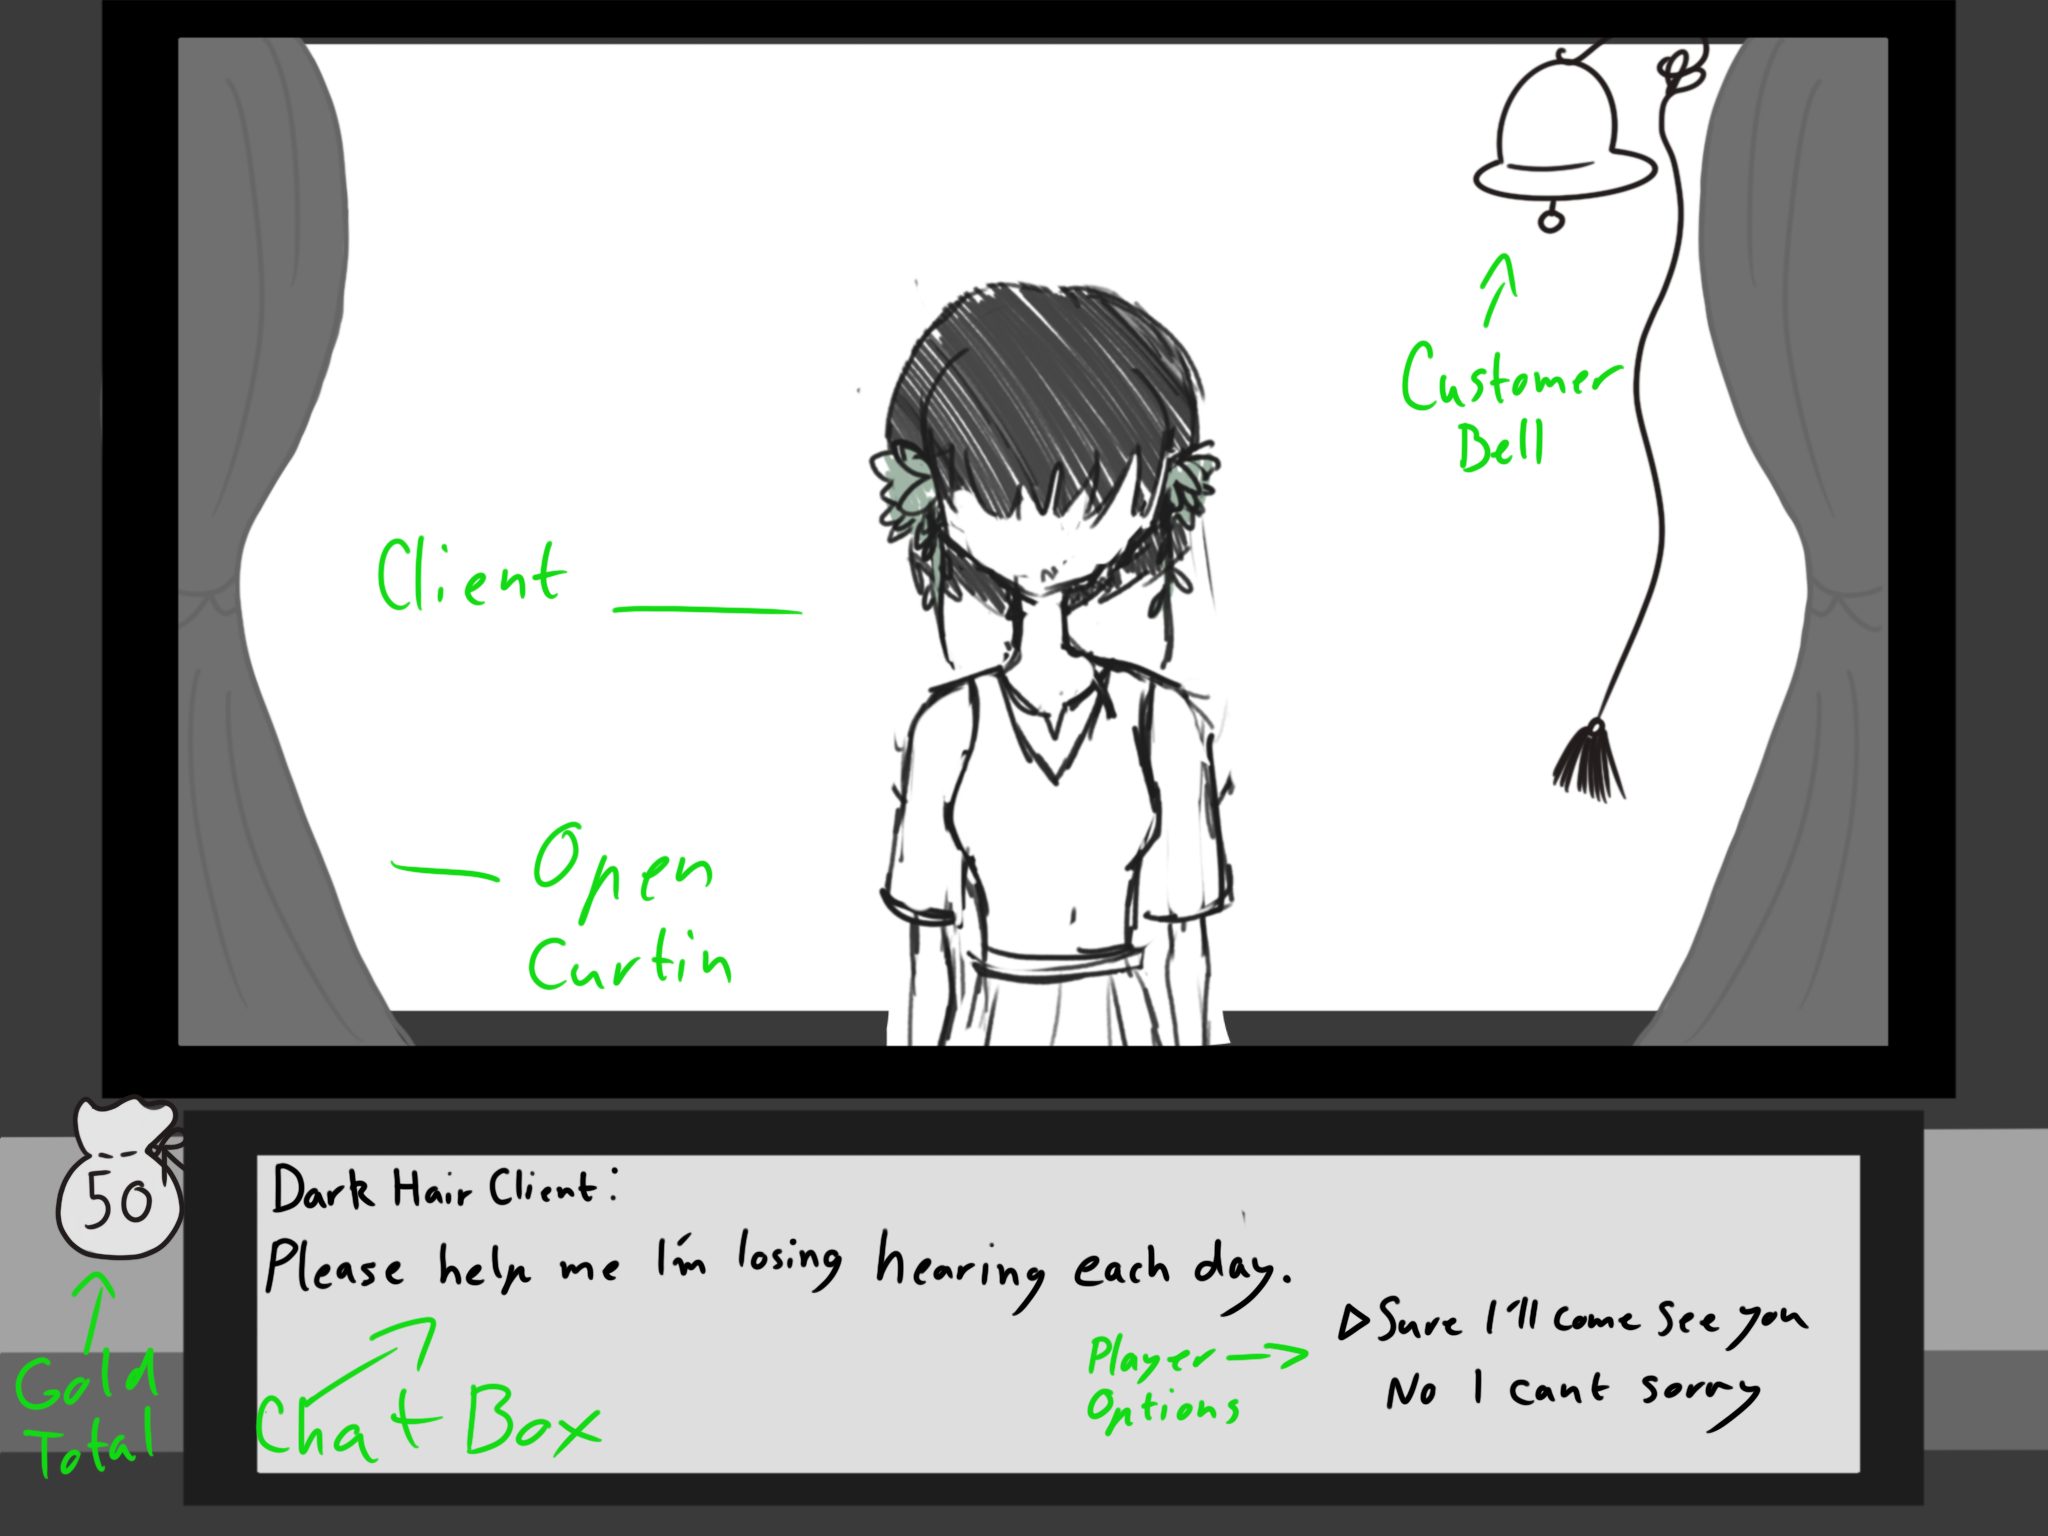 Customer
Bell
Client
Open
Curtin
50
Gold
Total
Dark Hair Client:
Please help me I'm losing hearing each day.
Chat Box
Player
Options
▷Sure I'll come see you
No I cant sorry